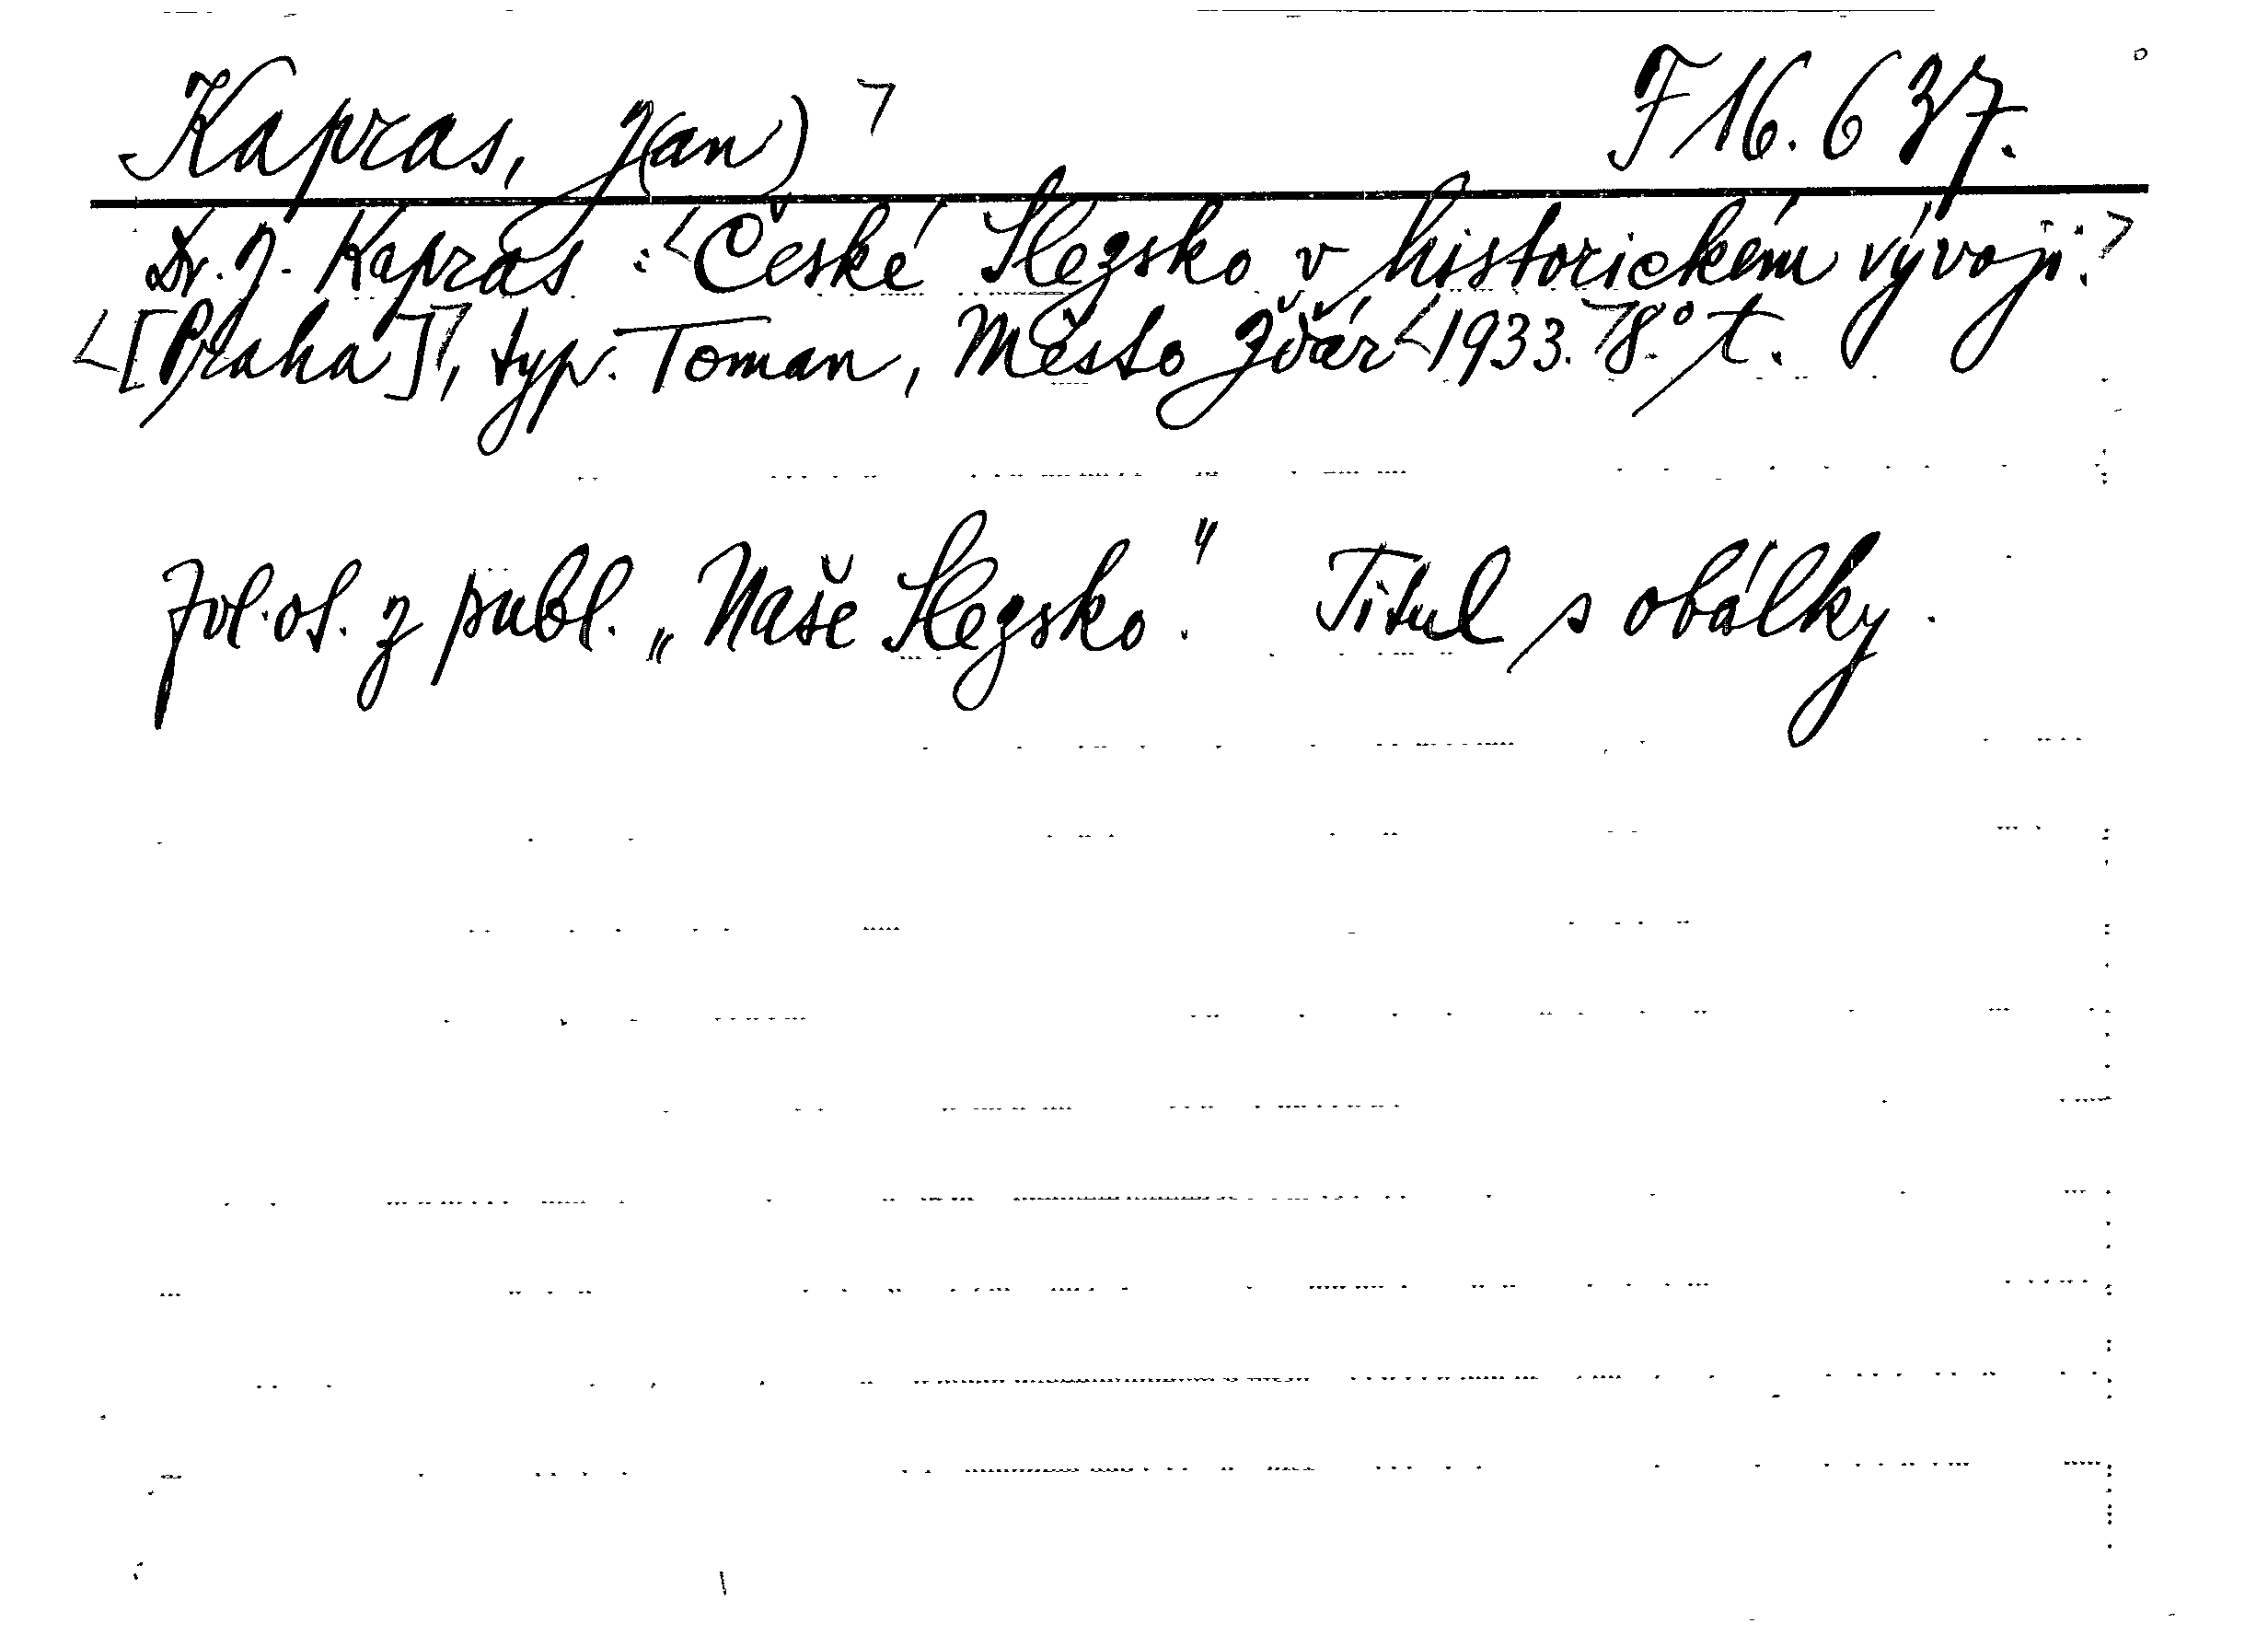 Kapras, J(an) F 16.637.
Dr. J. Kapras: České Slezsko v historickém vývoji.
[Praha], typ. Toman, Město Žďár 1933. 8° t.
Zvl. ot. z publ. „Naše Slezsko". Titul s obálky.